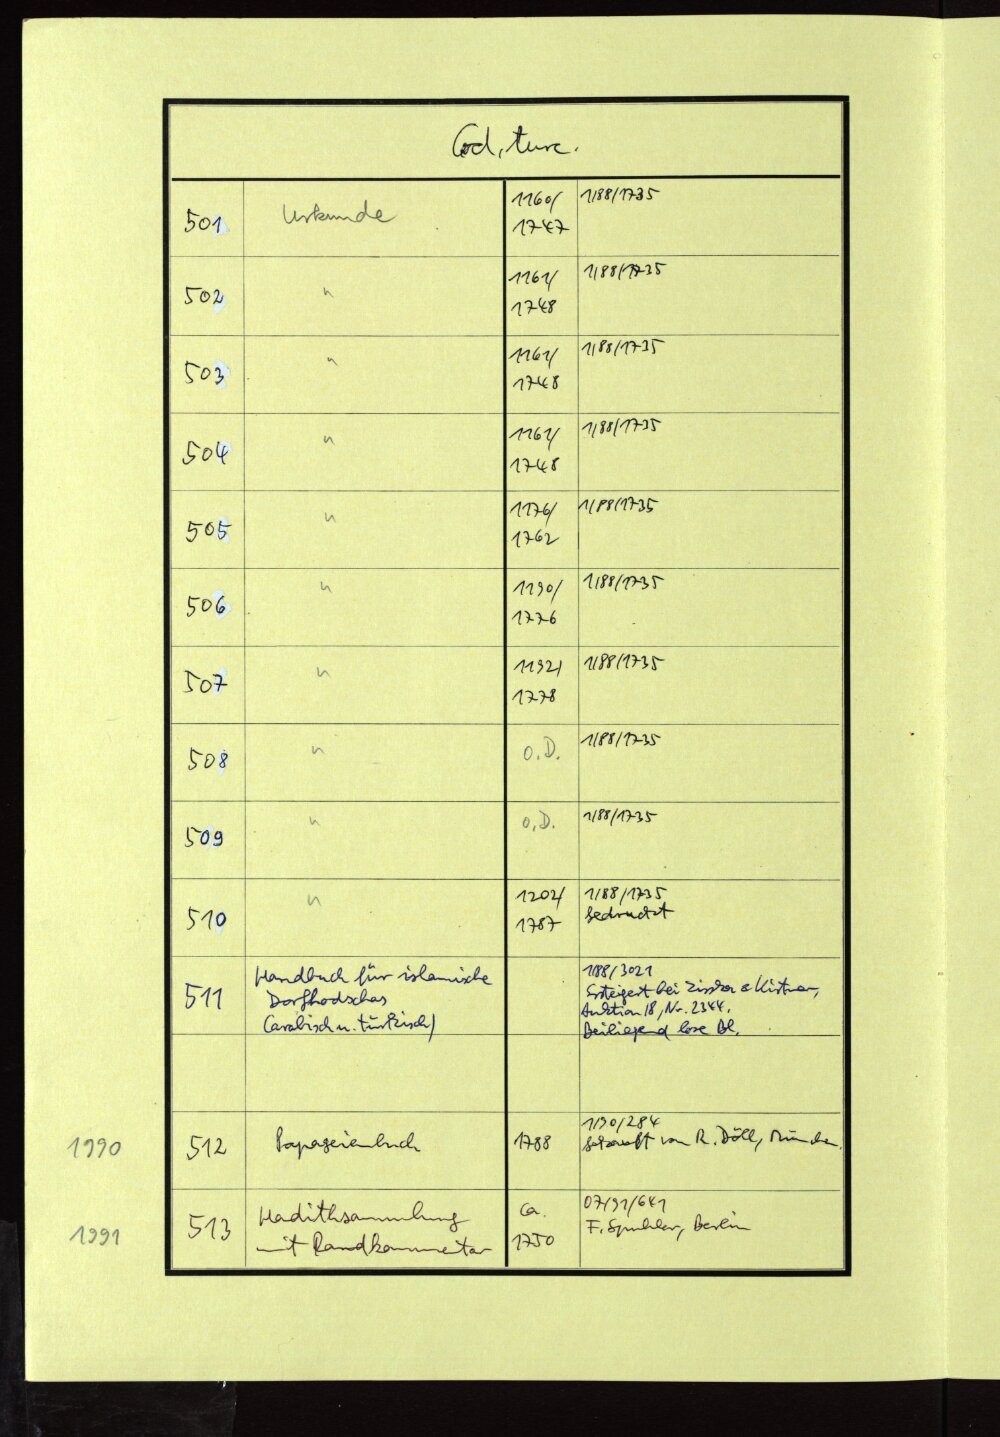 Cod. turc.
501 Urkunde 1160/ 1/88/1735
1747
502 " 1161/ 1/88/1735
1748
503 " 1161/ 1/88/1735
1748
504 " 1161/ 1/88/1735
1748
505 " 1176/ 1/88/1735
1762
506 " 1190/ 1/88/1735
1776
507 " 1192/ 1/88/1735
1778
508 " o.D. 1/88/1735
509 " o.D. 1/88/1735
510 " 1202/ 1/88/1735
1787 gedruckt
511 Handbuch für islamische 1/88/3021
Dorfhodschas Ersteigert bei Zisska & Kistner,
(arabisch u. türkisch) Auktion 18, Nr. 2344.
Beiliegend lose Bl.
1990 512 Papageienbuch 1788 1/90/284
gekauft von R. Döll, München
1991 513 Hadithsammlung ca. 07/91/641
mit Randkommentar 1750 F. Spuhler, Berlin